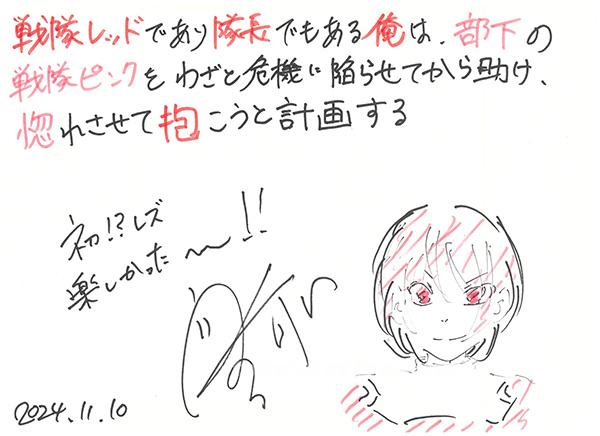 戦隊レッドであり隊長でもある俺は、部下の
戦隊ピンクをわざと危機に陥らせてから助け、
惚れさせて抱こうと計画する
初!?レズ
楽しかった〜!!
2024.11.10